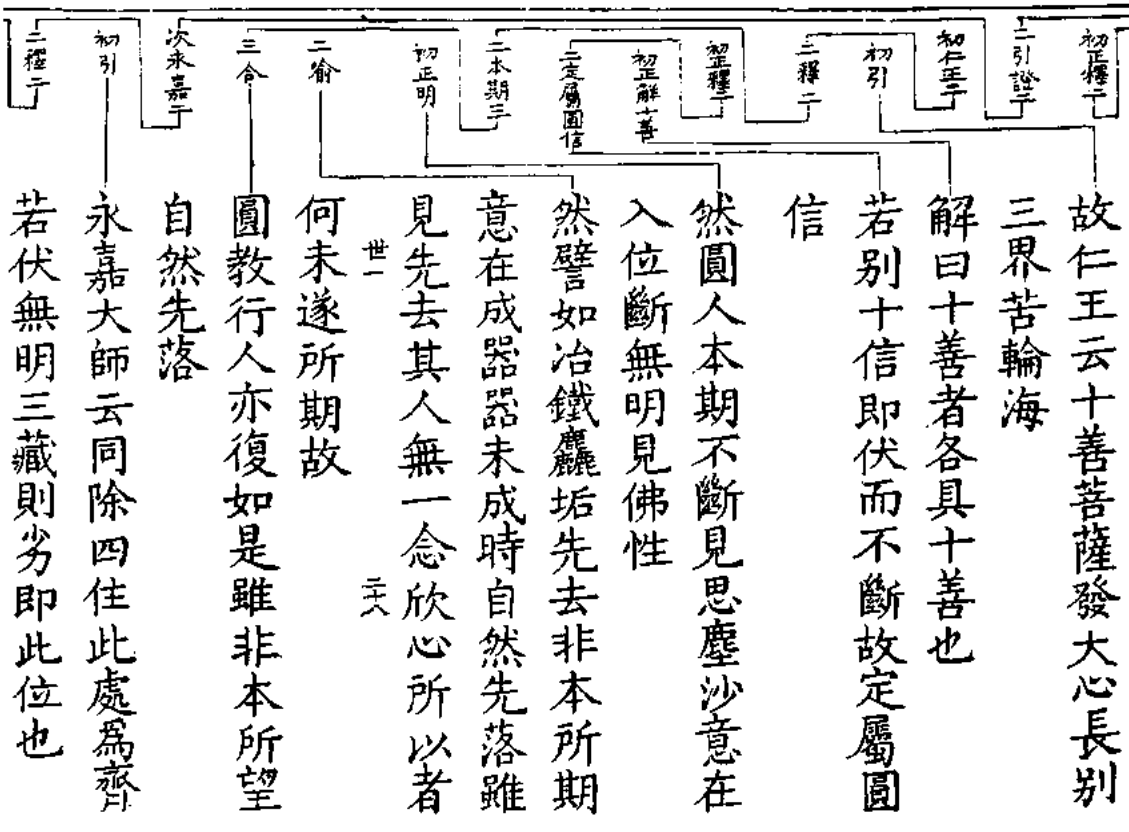 初正釋二
二引證二
初仁王二
初引
二釋二
初正釋二
初正解十善
二定屬圓信
二本期三
初正明
二喻
三合
次永嘉二
初引
二釋二
故仁王云十善菩薩發大心長別
三界苦輪海
解曰十善者各具十善也
若别十信即伏而不斷故定屬圓
信
然圓人本期不斷見思塵沙意在
入位斷無明見佛性
然譬如冶鐵麤垢先去非本所期
意在成器器未成時自然先落雖
見先去其人無一念欣心所以者
世一
二十八
何未遂所期故
圓教行人亦復如是雖非本所望
自然先落
永嘉大師云同除四住此處爲齊
若伏無明三藏則劣即此位也